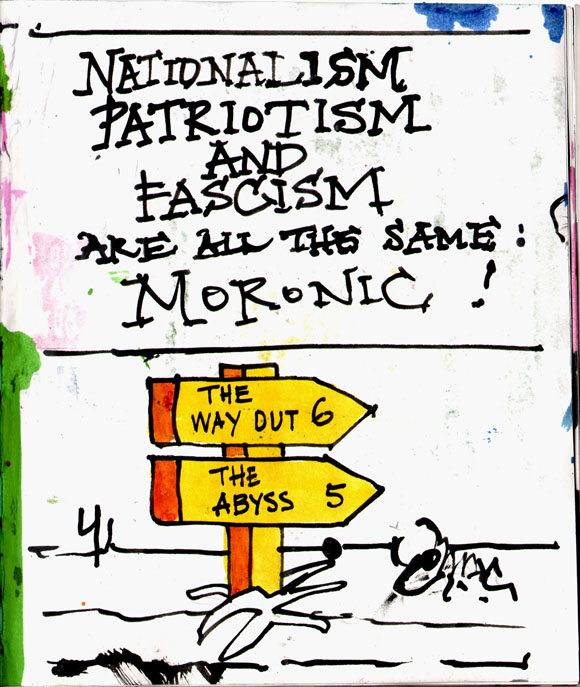 NATIONALISM
PATRIOTISM
AND
FASCISM
ARE ALL THE SAME:
MORONIC !
THE
WAY OUT 6
THE
ABYSS 5